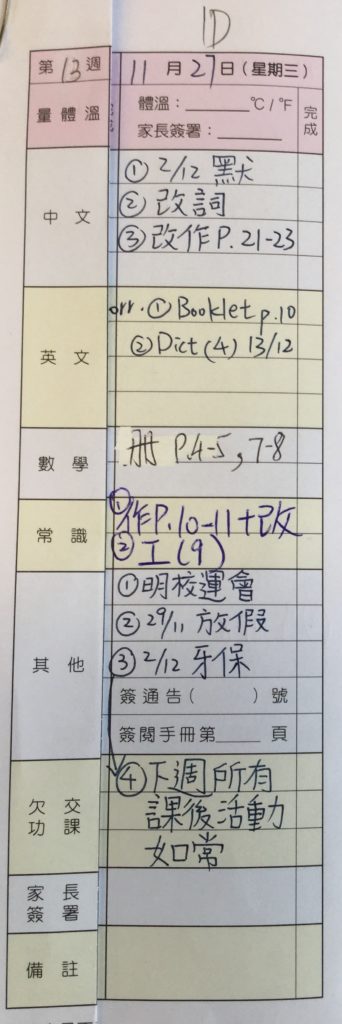 1D
第13週 11月27日(星期三)
量體溫 體溫：______℃/℉
家長簽署：______
完成
中文 ① 2/12 默
② 改詞
③ 改作 P.21-23
英文 orr. ① Booklet p.10
② Dict (4) 13/12
數學 册 P.4-5, 7-8
常識 ① 作P.10-11+改
② 工(9)
其他 ① 明校運會
② 29/11 放假
③ 2/12 牙保
簽通告( )號
簽閱手冊第____頁
欠交功課 ④ 下週所有
課後活動
如常
家長簽署
備註